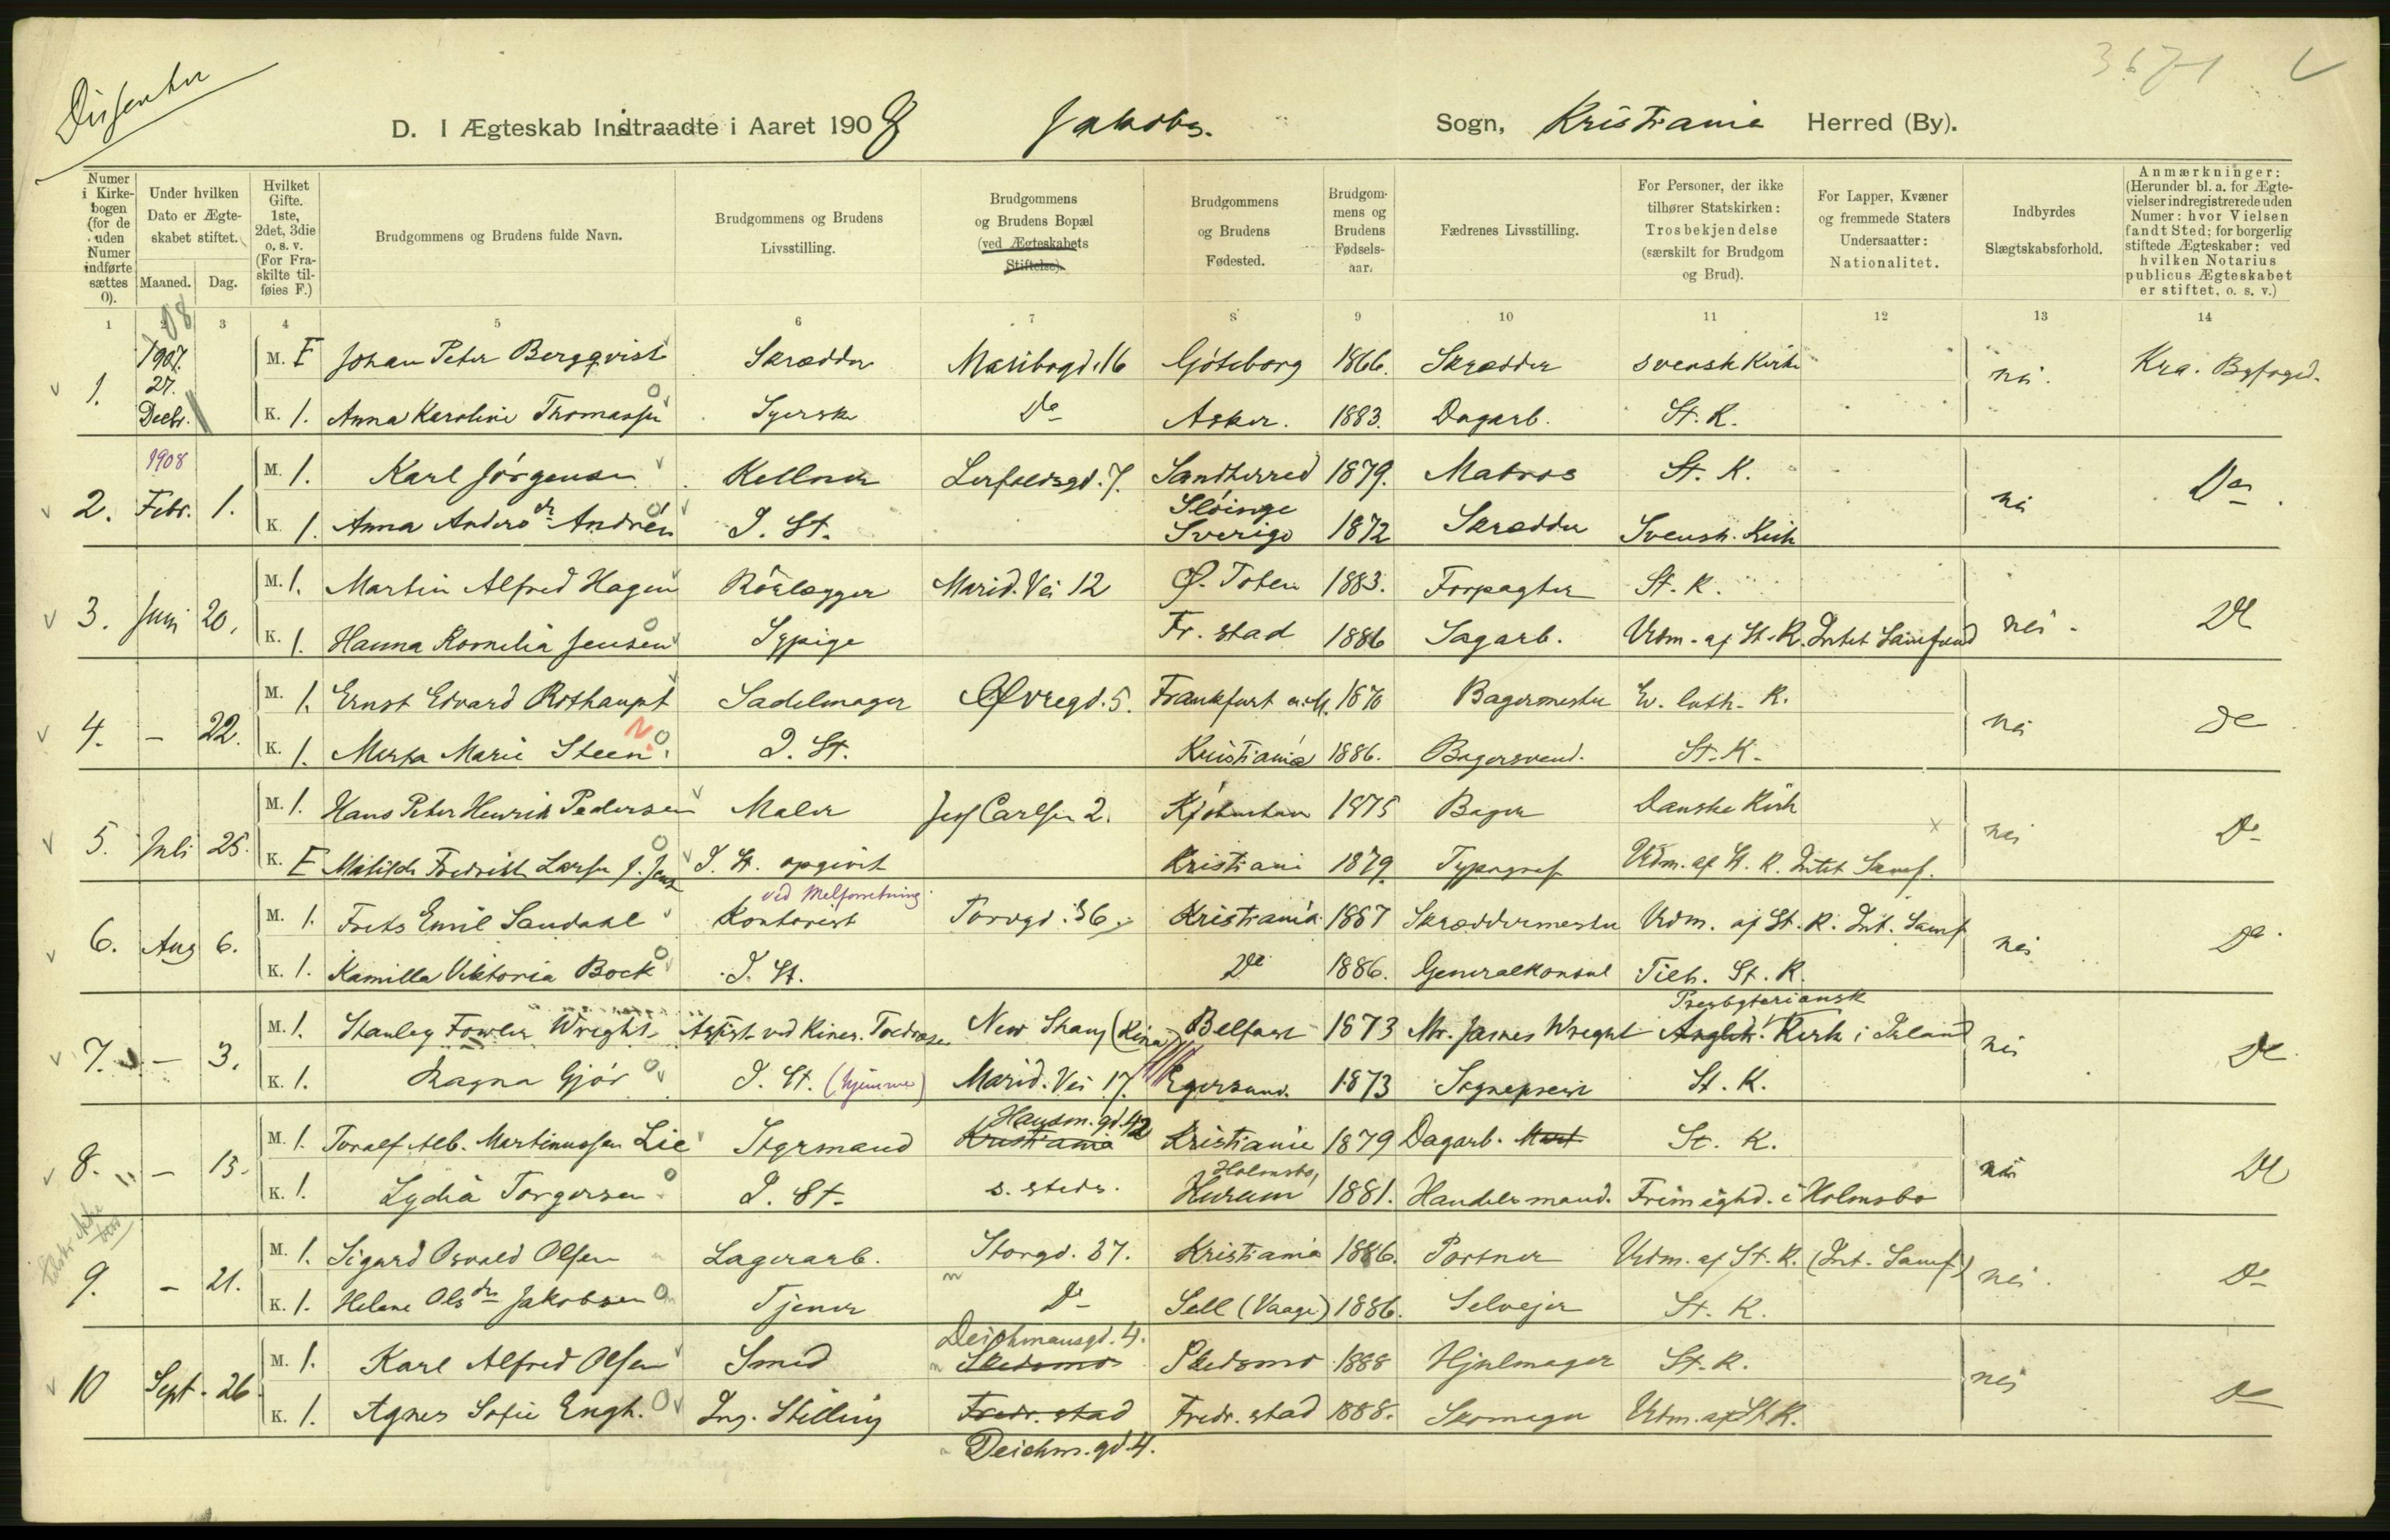 Dissenter
3671
D. I Ægteskab Indtraadte i Aaret 1908 Jakobs. Sogn, Kristiania Herred (By).
Numer i Kirkebogen (for de uden Numer indførte sættes 0).
Under hvilken Dato er Ægteskabet stiftet.
Maaned. Dag.
Hvilket Gifte. 1ste, 2det, 3die o. s. v. (For Fraskilte tilføies F.)
Brudgommens og Brudens fulde Navn.
Brudgommens og Brudens Livsstilling.
Brudgommens og Brudens Bopæl (ved Ægteskabets Stiftelse).
Brudgommens og Brudens Fødested.
Brudgommens og Brudens Fødselsaar.
Fædrenes Livsstilling.
For Personer, der ikke tilhører Statskirken: Trosbekjendelse (særskilt for Brudgom og Brud).
For Lapper, Kvæner og fremmede Staters Undersaatter: Nationalitet.
Indbyrdes Slægtskabsforhold.
Anmærkninger: (Herunder bl. a. for Ægtevielser indregistrerede uden Numer: hvor Vielsen fandt Sted; for borgerlig stiftede Ægteskaber: ved hvilken Notarius publicus Ægteskabet er stiftet, o. s. v.)
1 2 3 4 5 6 7 8 9 10 11 12 13 14
08
1. 1907. 27. Decbr. M. F Johan Peter Bergqvist Skrædder Maribogd. 16 Göteborg 1866. Skrædder svensk Kirke nei. Kra. Byfoged.
K. 1. Anna Karoline Thomassen Syerske Do Asker. 1883. Dagarb. St. K.
1908
2. Febr. 1. M. 1. Karl Jörgensen Kellner Lerfaldsgd. 7. Sandherred 1879. Matros St. K. nei Do
K. 1. Anna Anders dr Andrén I. St. Slöinge Sverige 1872 Skrædder Svensk. Kirk
3. Juni 20. M. 1. Martin Alfred Hagen Rörlægger Marid. Vei 12 Ø. Toten 1883. Forpagter St. K. nei. Do
K. 1. Hanna Kornelia Jensen Sypige Fr. stad 1886 Sagarb. Udm. af St. K. Intet Samfund
4. — 22. M. 1. Ernst Edvard Rothaupt Sadelmager Øvregd. 5. Frankfurt a. M. 1876 Bagermester Ev. luth. K. nei Do
K. 1. Marta Marie Steen I. St. Kristiania 1886. Bagersvend. St. K.
5. Juli 25. M. 1. Hans Peter Henrik Pedersen Maler Jess Carlsen 2. Kjöbenhavn 1875 Bager Danske Kirk nei Do
K. F Matilde Fredrikke Larsen f. Jens I. St. opgivet Kristiani 1879. Typograf Udm. af St. K. Intet Samf.
6. Aug 6. M. 1. Frits Emil Sandahl Kontorist ved Melforretning Torvgd. 36. Kristiania 1887 Skræddermester Udm. af St. K. Int. Samf. nei Do
K. 1. Kamilla Viktoria Bock I. St. Do 1886. Generalkonsul Tilh. St. K.
7. — 3. M. 1. Stanley Fowler Wright Assist. ved Kines. Toldvæsen New Shang (Kina) Belfast 1873 Mr. James Wright Presbyteriansk Kirk i Irland nei Do
K. 1. Ragna Gjör I. St. (hjemme) Marid. Vei 17. Egersund. 1873 Sogneprest St. K.
8. — 15. M. 1. Toralf Alb. Martinussen Lie Styrmand Kristiania Hausm. gd. 42 Kristiania 1879 Dagarb. St. K. nei Do
K. 1. Lydia Torgersen I. St. s. steds. Holmsbo, Hurum 1881. Handelsmand. Frimeighd. i Holmsbo
9. — 21. M. 1. Sigurd Osvald Olsen Lagerarb. Storgd. 37. Kristiania 1886. Portner Udm. af St. K. (Int. Samf.) nei. Do
K. 1. Helene Ols dr Jakobsen Tjener Do Sell (Vaage) 1886. Selveier St. K.
10 Sept. 26 M. 1. Karl Alfred Olsen Smed Deichmansgd. 4. Skedsmo Skedsmo 1888 Hjulmager St. K. nei Do
K. 1. Agnes Sofie Engh. Ing. Stilling Fredr. stad Fredr. stad 1888. Skomager Udm. af St. K.
Deichm. gd. 4.